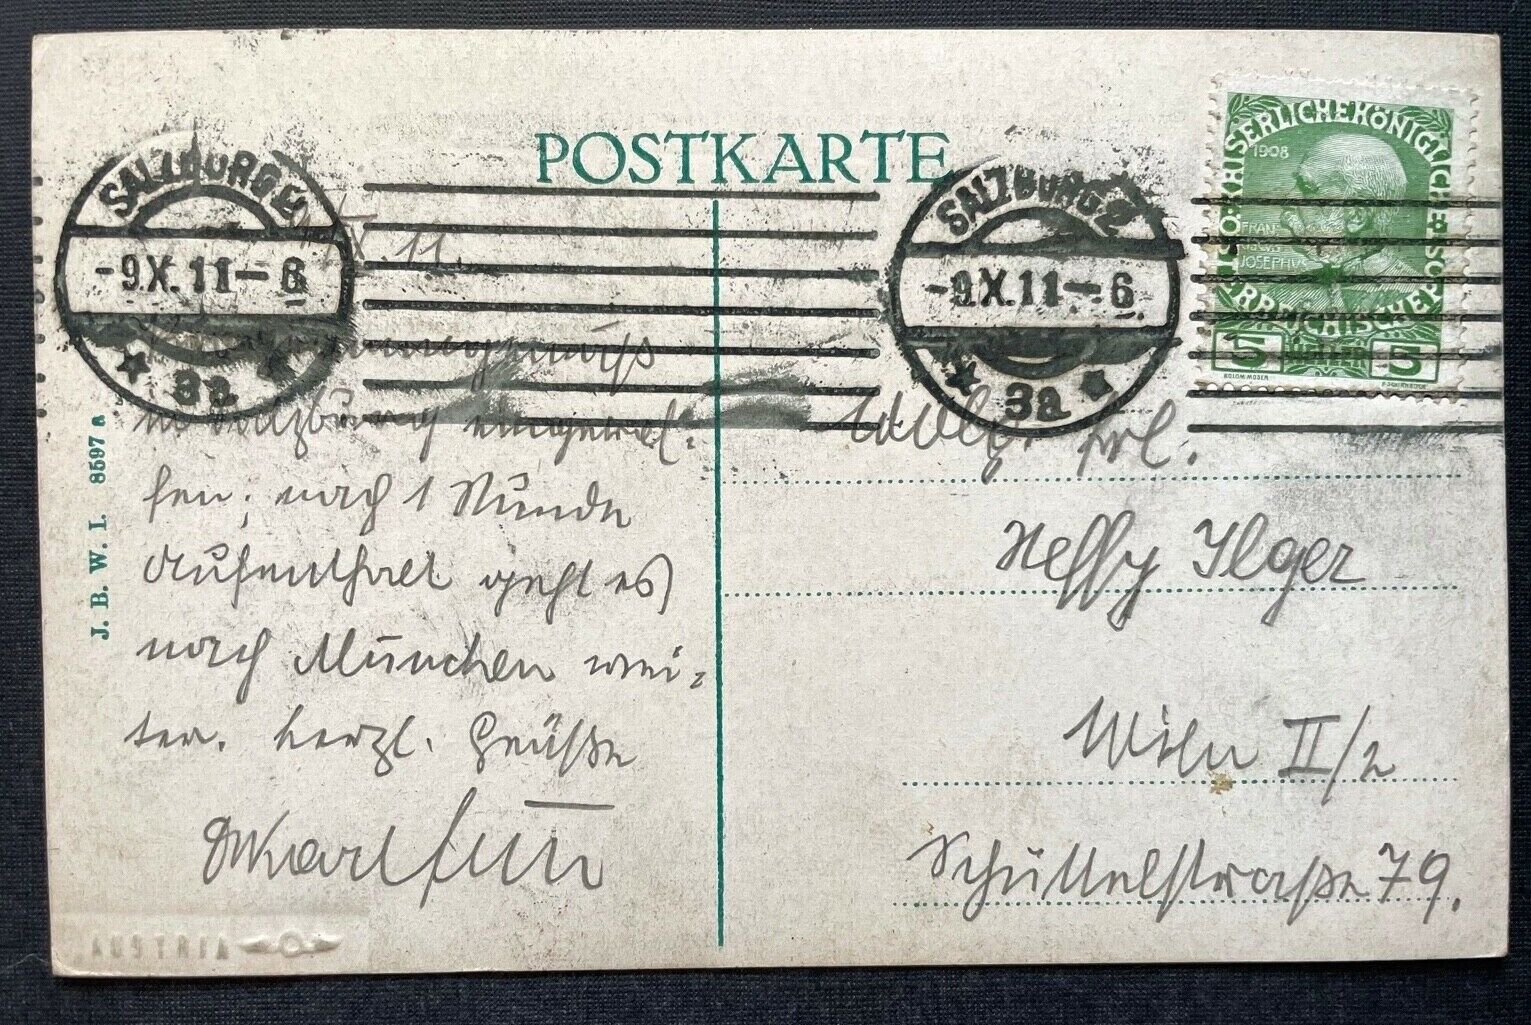 POSTKARTE
SALZBURG 2
-9.X.11-6
3a
SALZBURG 2
-9.X.11-6
3a
KAISERLICHE KÖNIGLICHE ÖSTERREICHISCHE POST
1908
FRAN
JOSEPHVS
5 HELLER 5
KOLOM. MOSER
X. 11.
in Salzburg eingetrof-
fen; nach 1 Stunde
Aufenthalt geht es
nach München wei-
ter. herzl. Grüße
Karl
Frl.
Ilger
Wien II/2
Schüttelstraße 79.
J. B. W. I. 8597 a
AUSTRIA